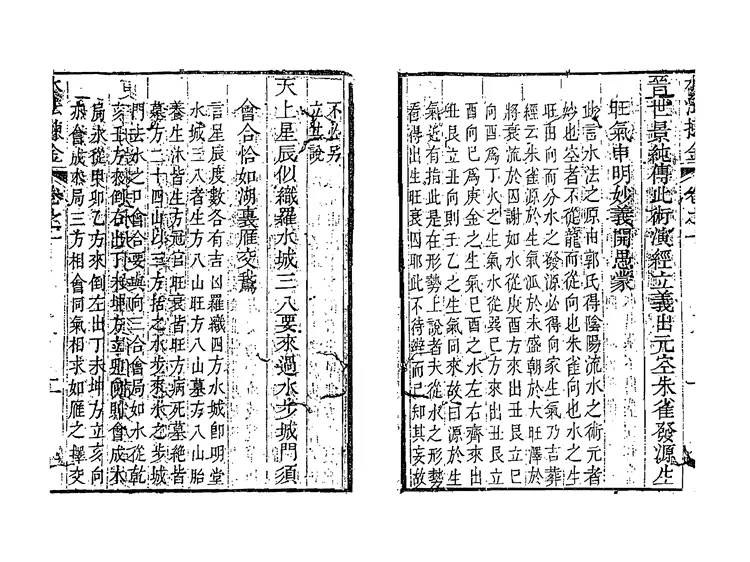 晉世景純傳此術演經立義出元空朱雀發源生
旺氣申明妙義開愚蒙
此言水法之源由郭氏得陰陽流水之術元者
妙也空者不從龍而從向也朱雀向也水之生
旺由向而分水之發源必得向家生氣乃吉葬
經云朱雀源於生氣派於未盛朝於大旺澤於
將衰流於囚謝如水從庚酉方來出丑艮立巳
向酉爲丁火之生氣水從巽巳方來出丑艮立
酉向巳爲庚金之生氣巳酉之水左右齊來出
丑艮立丑向則壬乙之生氣同來故曰源於生
氣近有指此是在形勢上說者夫從水之形勢
看得出生旺衰囚耶此不待辨而已知其妄故
水法撮金 卷之一
不必另
立世說
天上星辰似織羅水城三八要來過水步城門須
會合恰如湖裏雁交鵝
言星辰度數各有吉凶羅織四方水城卽明堂
水城三八者生方八山旺方八山墓方八山胎
養生沐皆生方冠官旺衰皆旺方病死墓絶皆
墓方二十四山以三方括之水步來水之步城
門去水之口會合要與向三合會局如水從乾
亥壬方來倒右出丁未坤方立卯向則會成木
局水從甲卯乙方來倒左出丁未坤方立亥向
亦會成木局三方相會同氣相求如雁之擇交
水法撮金 卷之一